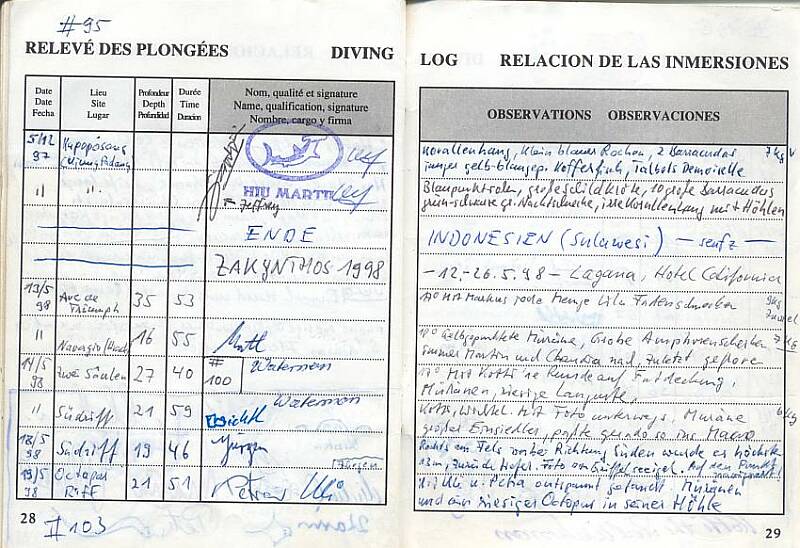 #95
RELEVÉ DES PLONGÉES DIVING
Date Date Fecha
Lieu Site Lugar
Profondeur Depth Profundidad
Durée Time Duracion
Nom, qualité et signature
Name, qualification, signature
Nombre, cargo y firma
5/12 97
HIU MARTIL
" "
ENDE
ZAKYNTHOS 1998
13/5 98 Arc de Triumph 35 53
" 16 55
14/5 98 Zwei Säulen 27 40 # 100 Waterman
" Südriff 21 59 Waterman
18/5 98 Südriff 19 46 Jürgen
19/5 98 Octopus Riff 21 51 Petra
28 # 103
LOG RELACION DE LAS INMERSIONES
OBSERVATIONS OBSERVACIONES
Korallenhang, klein blauer Rochen, 2 Barracudas 7kg
junger gelb-blaugep. Kofferfisch, Talbots Demoiselle
Blaupunktrochen, große Schildkröte, 10 große Barracudas
grün-schwarze gr. Nachtschnecke, irre Korallenhang mit Höhlen
INDONESIEN (Sulawesi)
-12.-26.5.98 - Lagana, Hotel California
17° Mit Markus rote Menge Lila Fadenschnecken
18° Gelbgepunktete Muräne, Grobe Amphorenscheiben 7kg
immer Martin und Chandra nah, zuletzt gefroren
17° Mit Kotti 'ne Runde auf Entdeckung,
Muränen, riesige Languste,
mit Foto unterwegs, Muräne 6kg
großer Einsiedler, paßte gerade so ins Macro
Rechts am Fels vorbei Richtung Süden wurde es höchste
13m, zurück Foto von Griffelseeigel. Auf den Punkt
Mit Uli u. Petra entspannt getaucht. Muränen
und ein riesiger Octopus in seiner Höhle
29